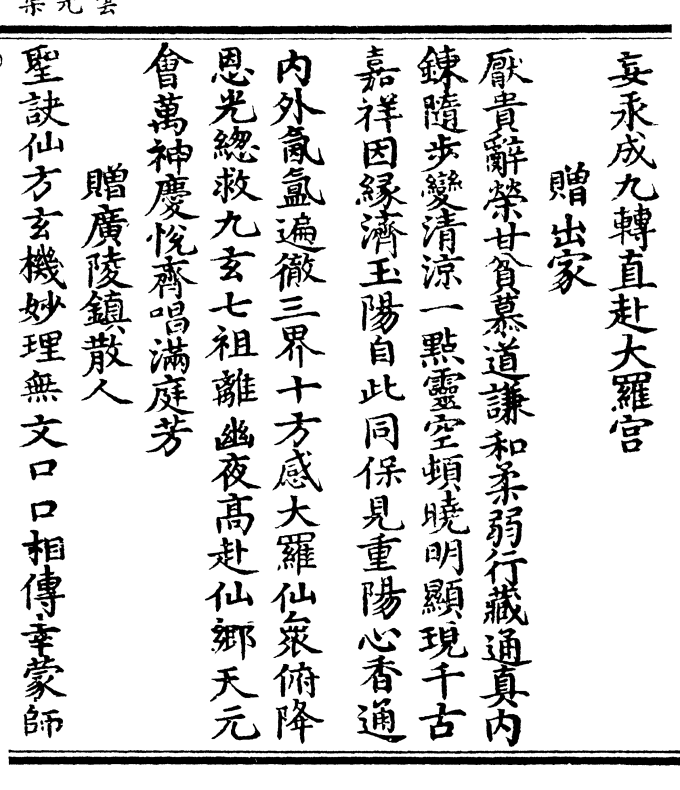 妄汞成九轉直赴大羅宮
贈出家
厭貴辭榮甘貧慕道謙和柔弱行藏通真內
鍊隨步變清涼一點靈空頓曉明顯現千古
嘉祥因緣濟玉陽自此同保見重陽心香通
內外氤氳遍徹三界十方感大羅仙眾俯降
恩光緫救九玄七祖離幽夜髙赴仙鄉天元
會萬神慶悅齊唱滿庭芳
贈廣陵鎮散人
聖訣仙方玄機妙理無文口口相傳幸蒙師